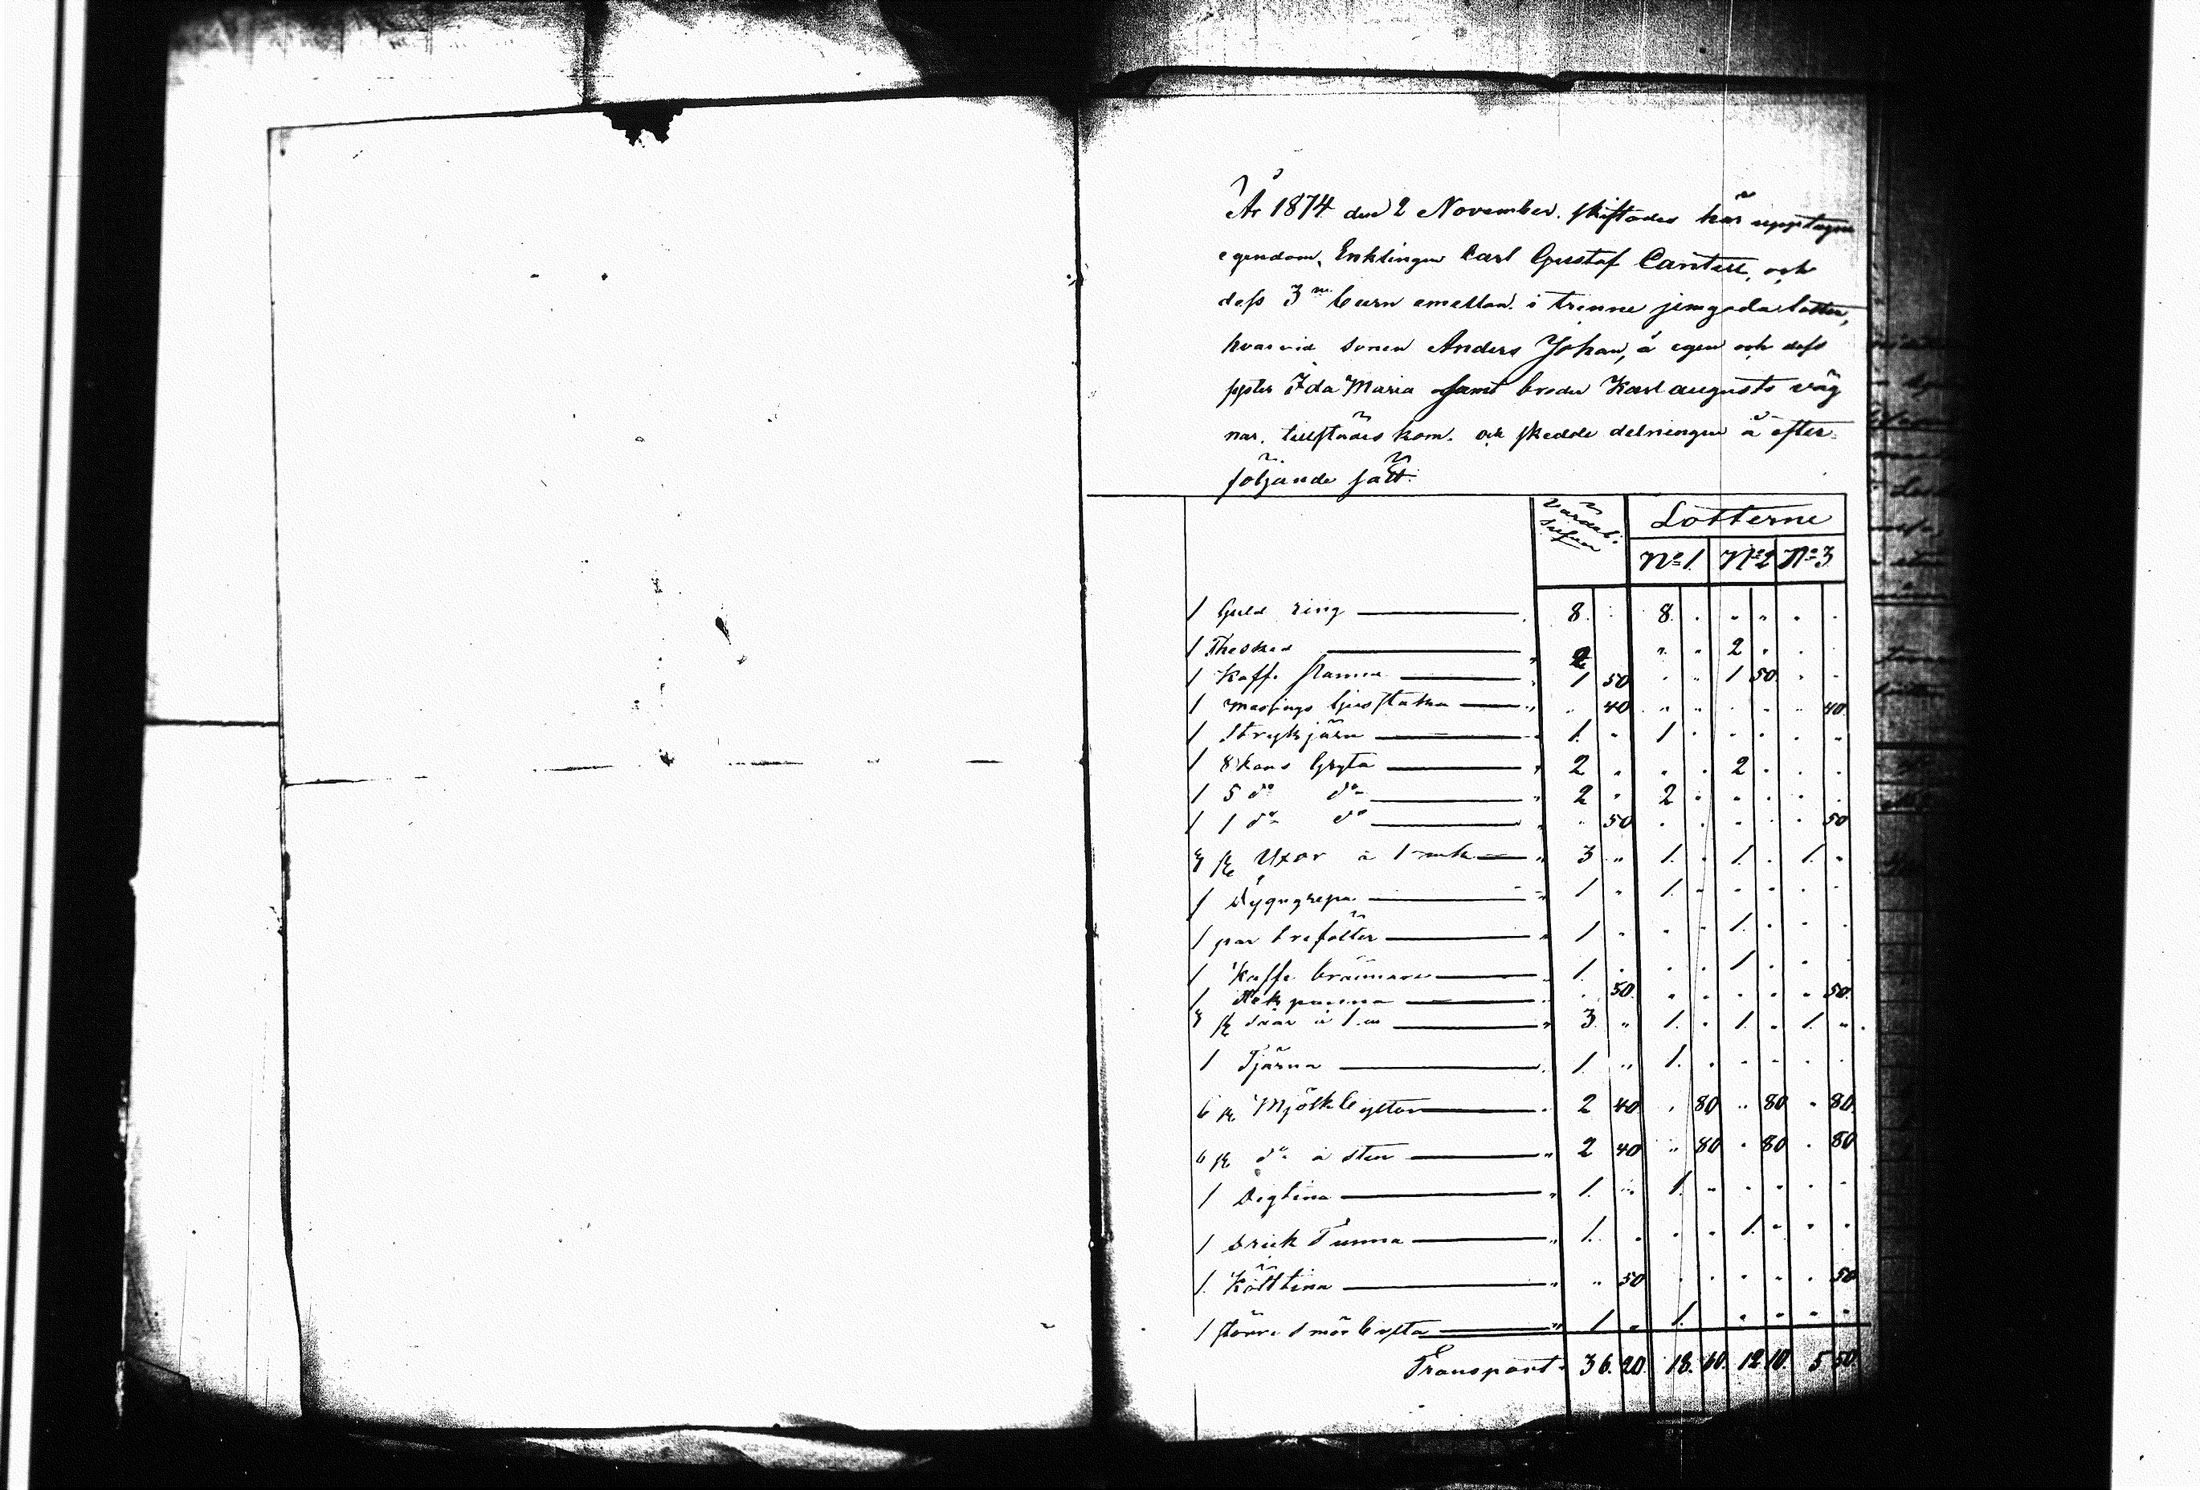 År 1874 den 2 November. skiftades här upptagne
egendom, Enklingen Carl Gustaf Cantell, och
dess 3ne barn emellan i trenne jemgoda lotter,
hvarvid sonen Anders Johan, å egen och dess
syster Ida Maria samt broder Karl augusts väg
nar. tillstädes kom. och skedde delningen å efter-
följande sätt.
Lotterne
No 1. No 2 No 3
1 Guld ring 8. 8.
1 Thesked 2 2
1 Kaffe panna 1 50 1 50
1 Messings ljusstaka 40 40
1 Strykjärn 1. 1
1 8 kans Gryta 2 2
1 5 do do 2 2
1 1 do do 50 50
3 st Yxor à 1 mk 3 1. 1. 1.
1 Dyngngrepe 1 1.
1 par 1 1.
1 Kaffe brännare 1. 1.
1 panna 50 50
3 st à 1 m 3 1. 1. 1.
1 Tjärna 1. 1.
6 st Mjölkbyttor 2 40 80 80 80
6 st do à sten 2 40 80 80 80
1 Degtina 1. 1.
1 Drick Tunna 1. 1.
1 Kötttina 50 50
1 större smör bytta 1 1.
Transport 36. 20. 18. 60. 12 10. 5 50.